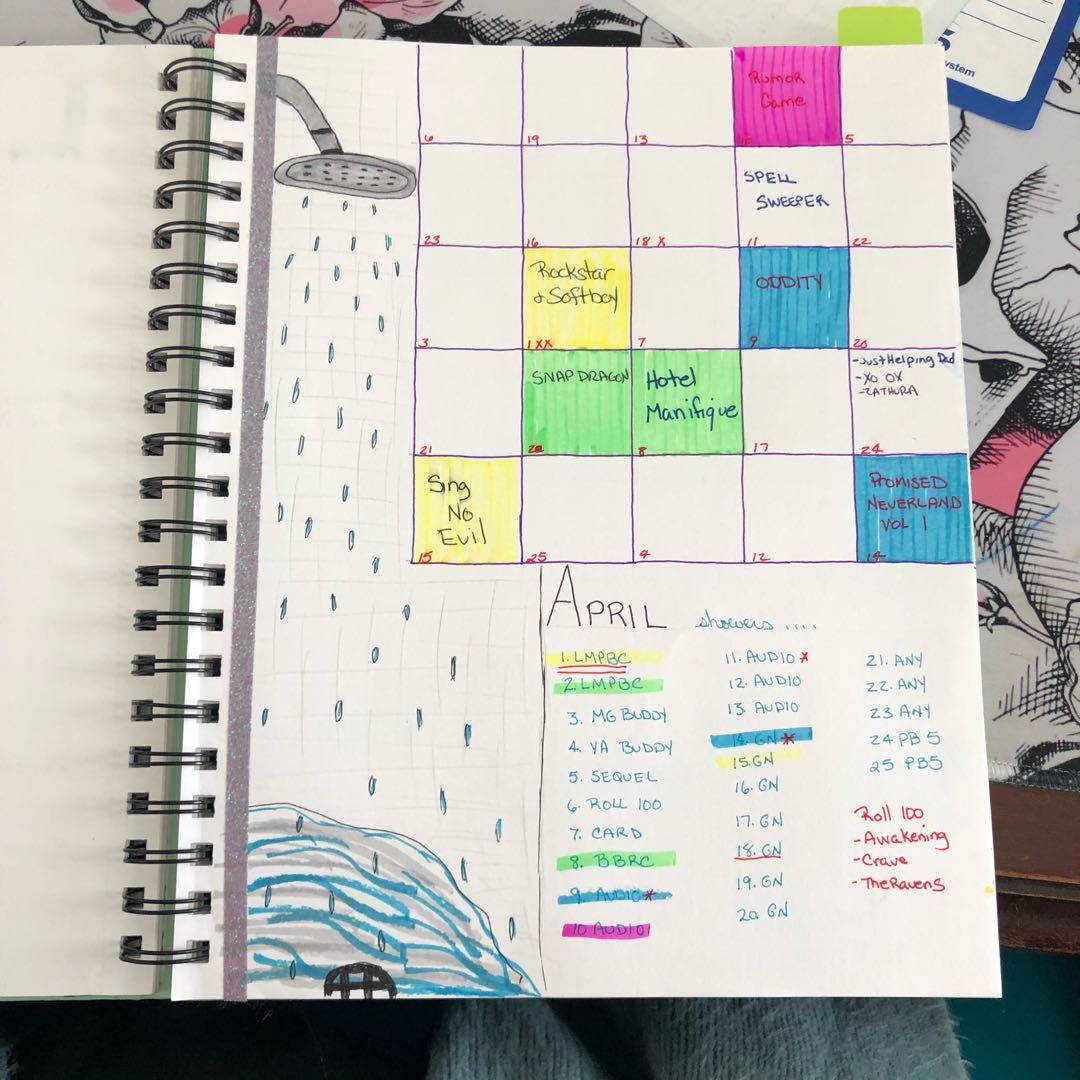 5
ystem
Rumor
Game
6
19
13
5
SPELL
SWEEPER
23
16
18 X
11
22
Rockstar
& Softboy
ODDITY
3
1XX
7
9
20
SNAPDRAGON
Hotel
Manifique
-Just Helping Dad
-XO OX
-ZATHURA
21
8
17
24
Sing
No
Evil
PROMISED
NEVERLAND
VOL 1
15
25
4
12
14
APRIL showers ....
1. LMPBC
2. LMPBC
3. MG BUDDY
4. YA BUDDY
5. SEQUEL
6. ROLL 100
7. CARD
8. BBRC
9 AUDIO*
10 AUDIO
11. AUDIO *
12. AUDIO
13. AUDIO
14. GN *
15. GN
16. GN
17. GN
18. GN
19. GN
20 GN
21. ANY
22. ANY
23 ANY
24 PB 5
25 PB5
Roll 100
-Awakening
-Crave
-The Ravens